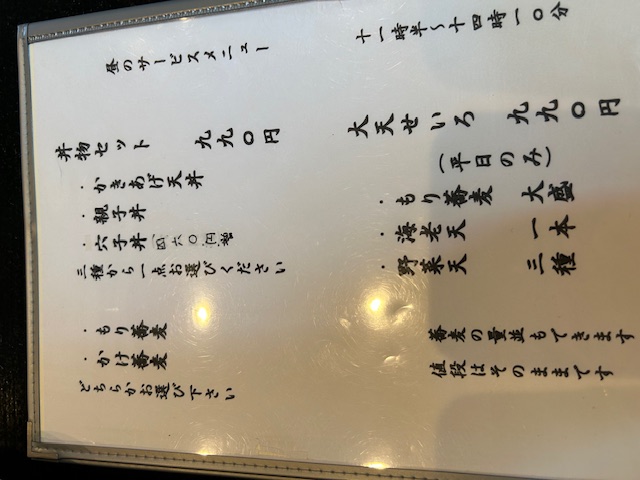 昼のサービスメニュー
十一時半～十四時一〇分
丼物セット 九九〇円
・かきあげ天丼
・親子丼
・穴子丼(四六〇円増)
三種から一点お選びください
・もり蕎麦
・かけ蕎麦
どちらかお選び下さい
大天せいろ 九九〇円
(平日のみ)
・もり蕎麦 大盛
・海老天 一本
・野菜天 三種
蕎麦の量並もできます
値段はそのままです